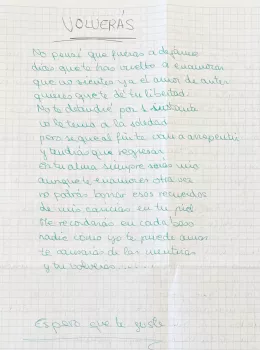 VOLVERÁS
No pensé que fueras a dejarme
dices que te has vuelto a enamorar
que no sientes ya el amor de antes
quieres que te dé tu libertad.
No te detendré por 1 instante
no le temo a la soledad
pero sé que al fin te vas a arrepentir
y tendrás que regresar
en tu alma siempre seras mío
aunque te enamores otra vez
no podrás borrar esos recuerdos
de mis caricias en tu piel
Me recordarás en cada beso
nadie como yo te puede amar
te cansarás de las mentiras
y tu volveras.....
Espero que te guste